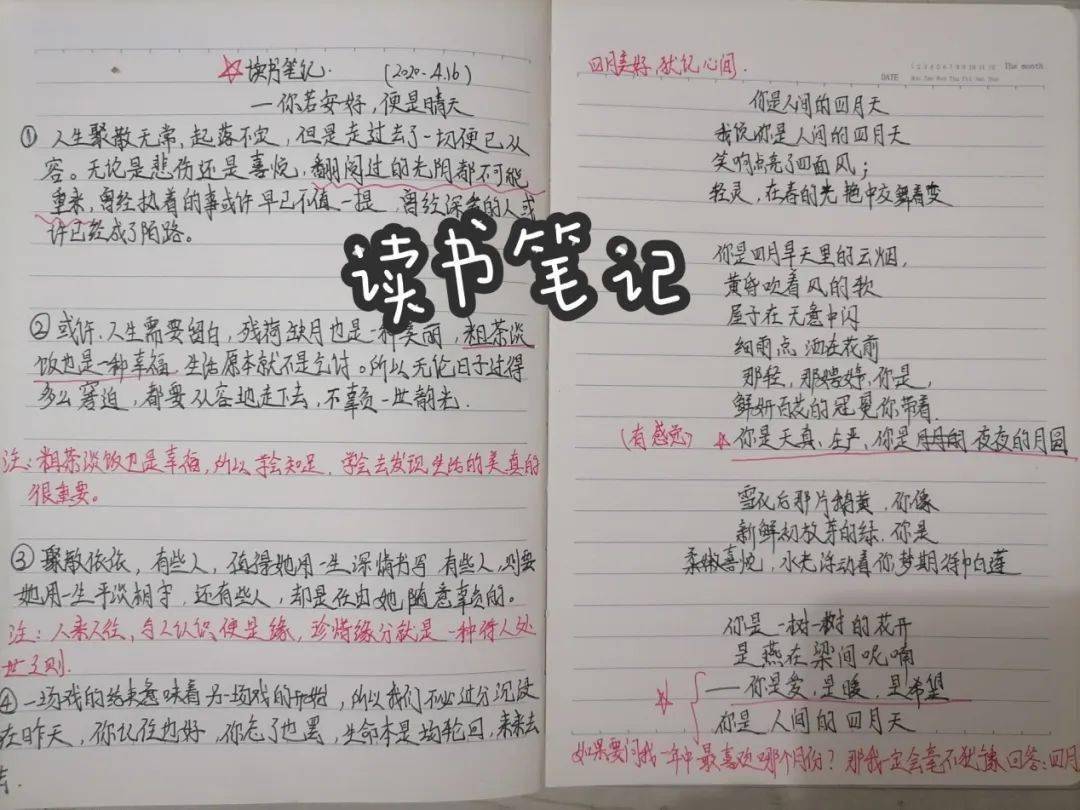 ☆读书笔记. (2020.4.16)
—你若安好,便是晴天
① 人生聚散无常,起落不定,但是走过去了一切便已从
容。无论是悲伤还是喜悦,翻阅过的光阴都不可能
重来,曾经执着的事或许早已不值一提,曾经深爱的人或
许已经成了陌路。
读书笔记
② 或许,人生需要留白,残荷缺月也是一种美丽,粗茶淡
饭也是一种幸福,生活原本就不是乞讨。所以无论日子过得
多么窘迫,都要从容地走下去,不辜负一世韶光.
注:粗茶淡饭也是幸福,所以学会知足,学会去发现生活的美真的
很重要。
③ 聚散依依,有些人,值得她用一生深情书写 有些人,则要
她用一生平淡相守,还有些人,却是任由她随意辜负的。
注:人来人往,与人认识便是缘,珍惜缘分就是一种待人处
世之则.
④ 一场戏的结束意味着另一场戏的开始,所以我们不必过分沉浸
在昨天,你记住也好,你忘了也罢,生命本是场轮回,来来去
去.
四月美好,犹记心间.
DATE 1 2 3 4 5 6 7 8 9 10 11 12 The month
Mon Tue Wed Thu Fri Sat Sun
你是人间的四月天
我说你是人间的四月天
笑响点亮了四面风;
轻灵,在春的光艳中交舞着变
你是四月早天里的云烟,
黄昏吹着风的软
星子在无意中闪
细雨点洒在花前
那轻,那娉婷,你是,
鲜妍百花的冠冕你带着
(有感觉) ☆你是天真、庄严,你是夜夜的月圆
雪化后那片鹅黄,你像
新鲜初放芽的绿,你是
柔嫩喜悦,水光浮动着你梦期待中白莲
你是一树一树的花开
是燕在梁间呢喃
☆ ——你是爱,是暖,是希望
你是人间的四月天
如果要问我一年中最喜欢哪个月份?那我一定会毫不犹豫回答:四月